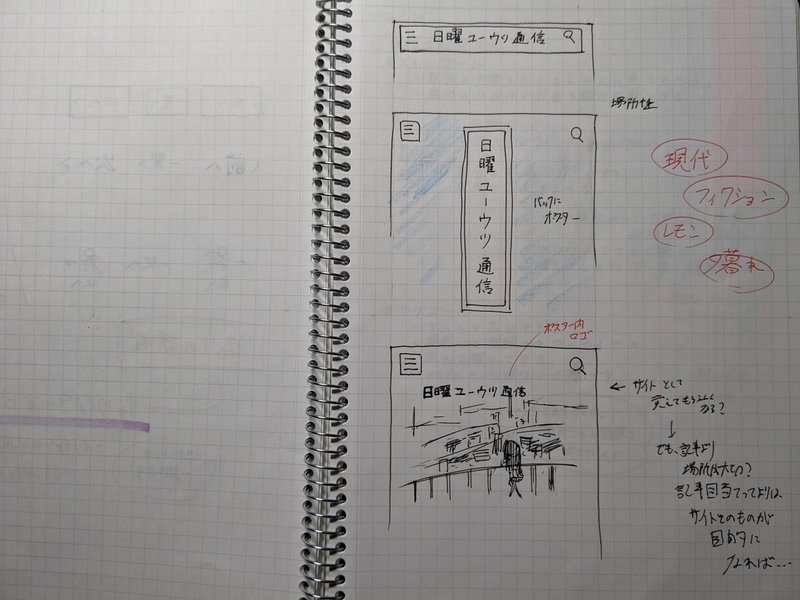 日曜ユーウツ通信
場所性
日曜ユーウツ通信
バックに
ポスター
現代
フィクション
レモン
夕暮れ
ポスター内
ロゴ
日曜ユーウツ通信
← サイトとして
覚えてもらいにく
なる?
↓
でも、記事より
場所が大切?
記事目当てってよりは、
サイトそのものが
目的に
なれば…
〈前へ 一覧 次へ〉